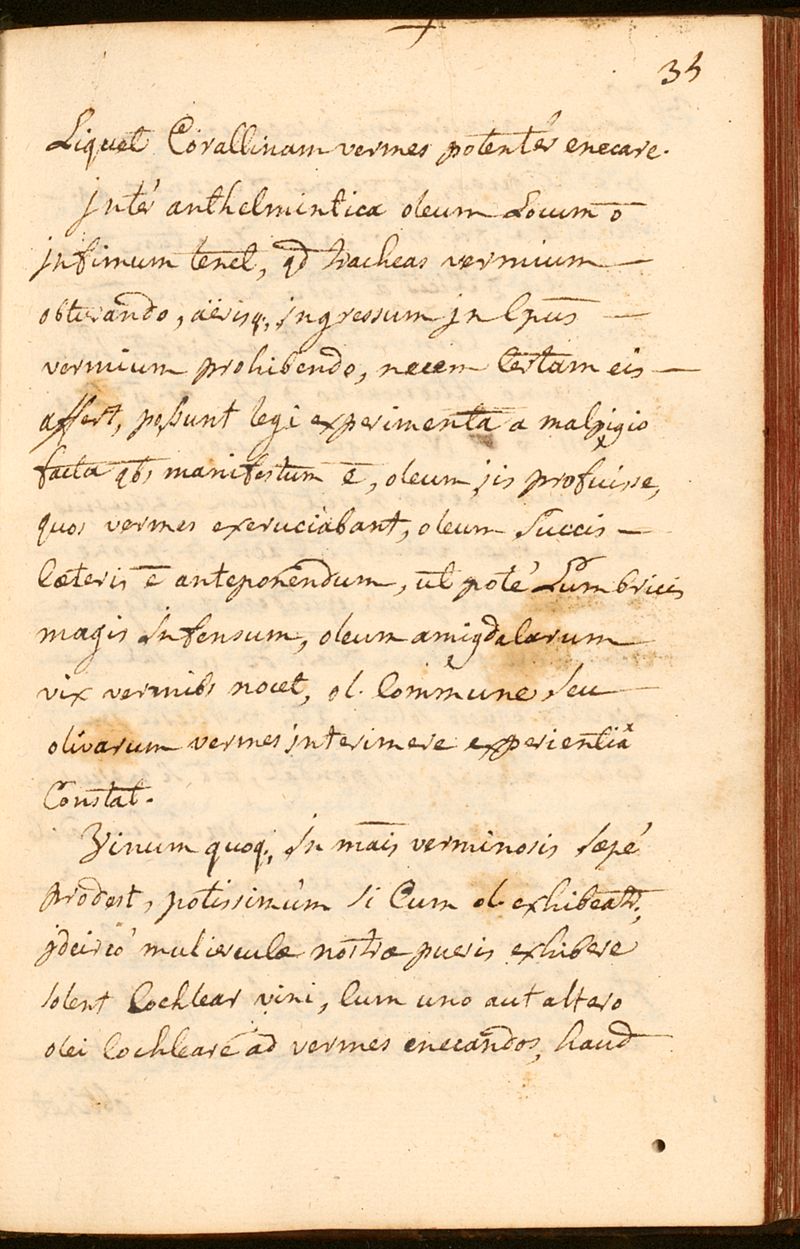 35
Liquet Corallinam vermes potentér enecare.
jntér anthelmintica oleum Locum õ
jnfimum tenet, qd tracheas vermium
obturando, aërisq, ingressum jn Cpus
vermium prohibendo, necem Certam eis
affert, possunt legi experimenta a malpigio
facta qbs manifestum ē, oleum jis profuisse,
quos vermes exeruciabant, oleum Succis
Cæteris ē anteponendum, ut poté Lumbricis
magis Infensum, oleum amigdalarum
vix vermibs nocet, ol. Commune Seu
olivarum vermes jnterimere experientiâ
Constat.
Vinum quoq, In mãis verminosis Sæpé
prodest, potissimúm Si Cum ol. exhibeatr,
jdcircó mulierculæ nostræ pueris exhibere
solent Cochlear vini, Cum uno aut altero
olei Cochleare ad vermes enecandos, haud